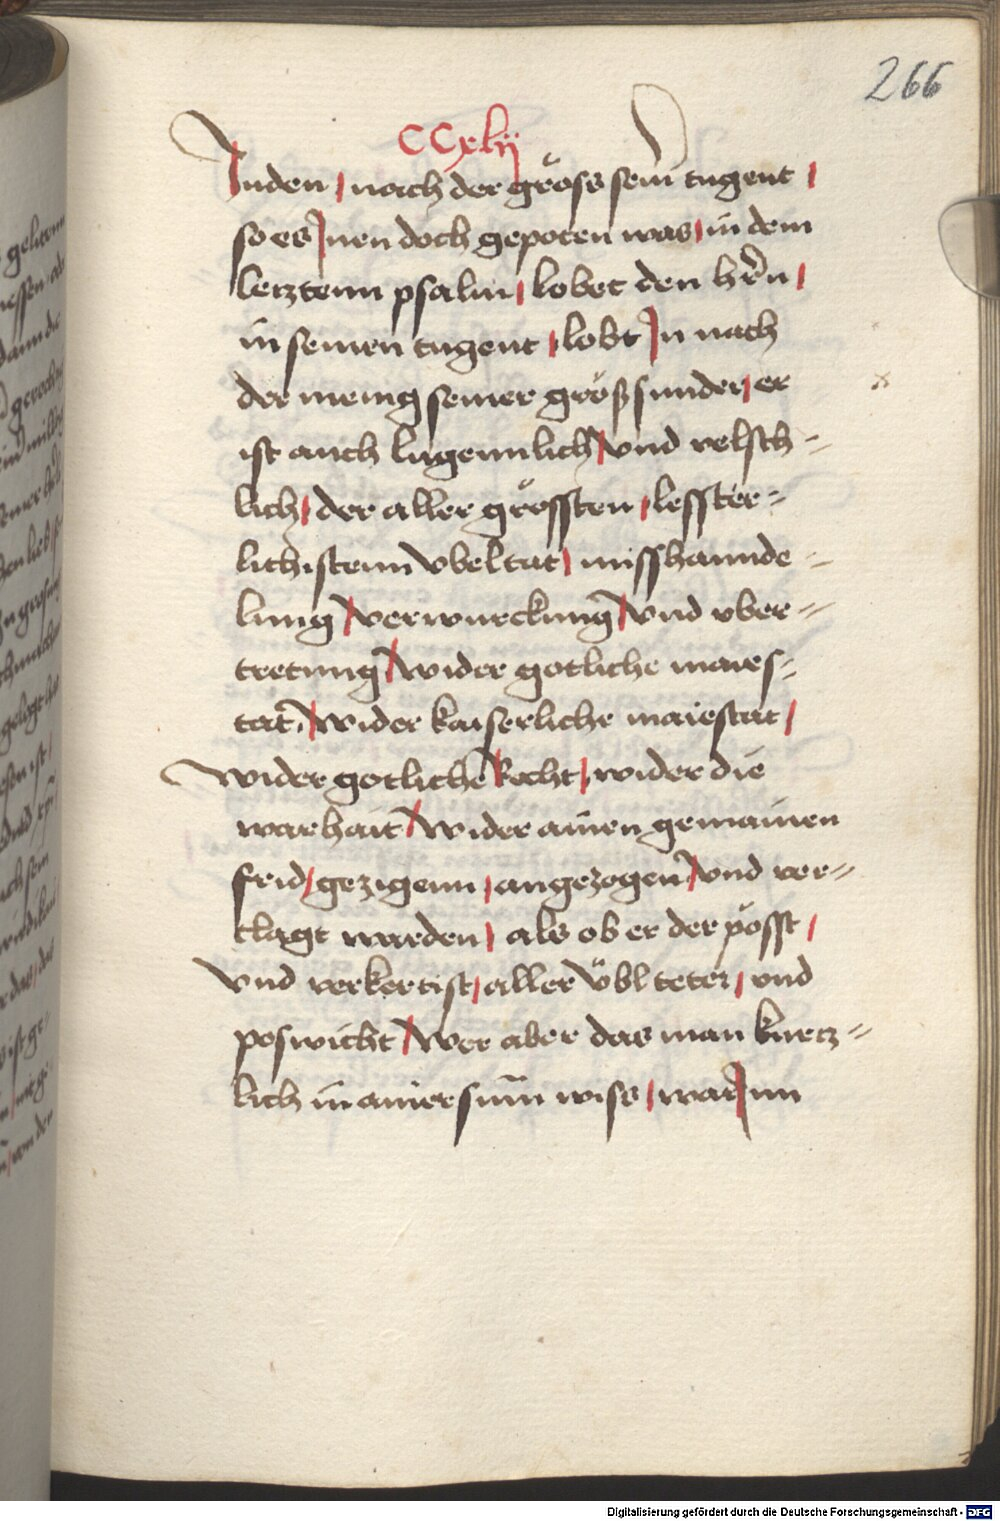 266
CCxlij
Juden / nach der gröss sein tugent /
so es Jnen doch gepoten was / in dem
letztenn psalm / lobet den hern /
in seinen tugent / lobt Jn nach
der menig seiner größ sunder / er
ist auch lugennlich / vnd velsch-
lich / der aller grössten / lesster-
lichistenn vbeltat / misshannde-
lung / verwurckung / vnd vber-
tretung / wider gotliche maies-
tat / wider kaiserliche maiestat /
wider gotliche Recht / wider die
warhait / wider ainen gemainen
frid / gezigenn / angezogen / vnd ver-
klagt warden / als ob er der pösst /
vnd verkertist / aller üblteter / vnd
poswicht / wer aber das man kurtz-
lich in ainer sum wiss / war Jnn
Digitalisierung gefördert durch die Deutsche Forschungsgemeinschaft - DFG